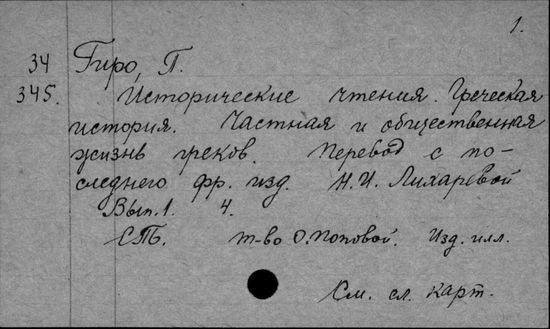 1.
34 Гиро, П.
345. Исторические чтения. Греческая
история. Частная и общественная
жизнь греков. Перевод с по-
следнего фр. изд. Н.И. Лихаревой
Вып. 1. Ч.
СПБ. т-во О. Поповой. Изд. илл.
См. сл. карт.